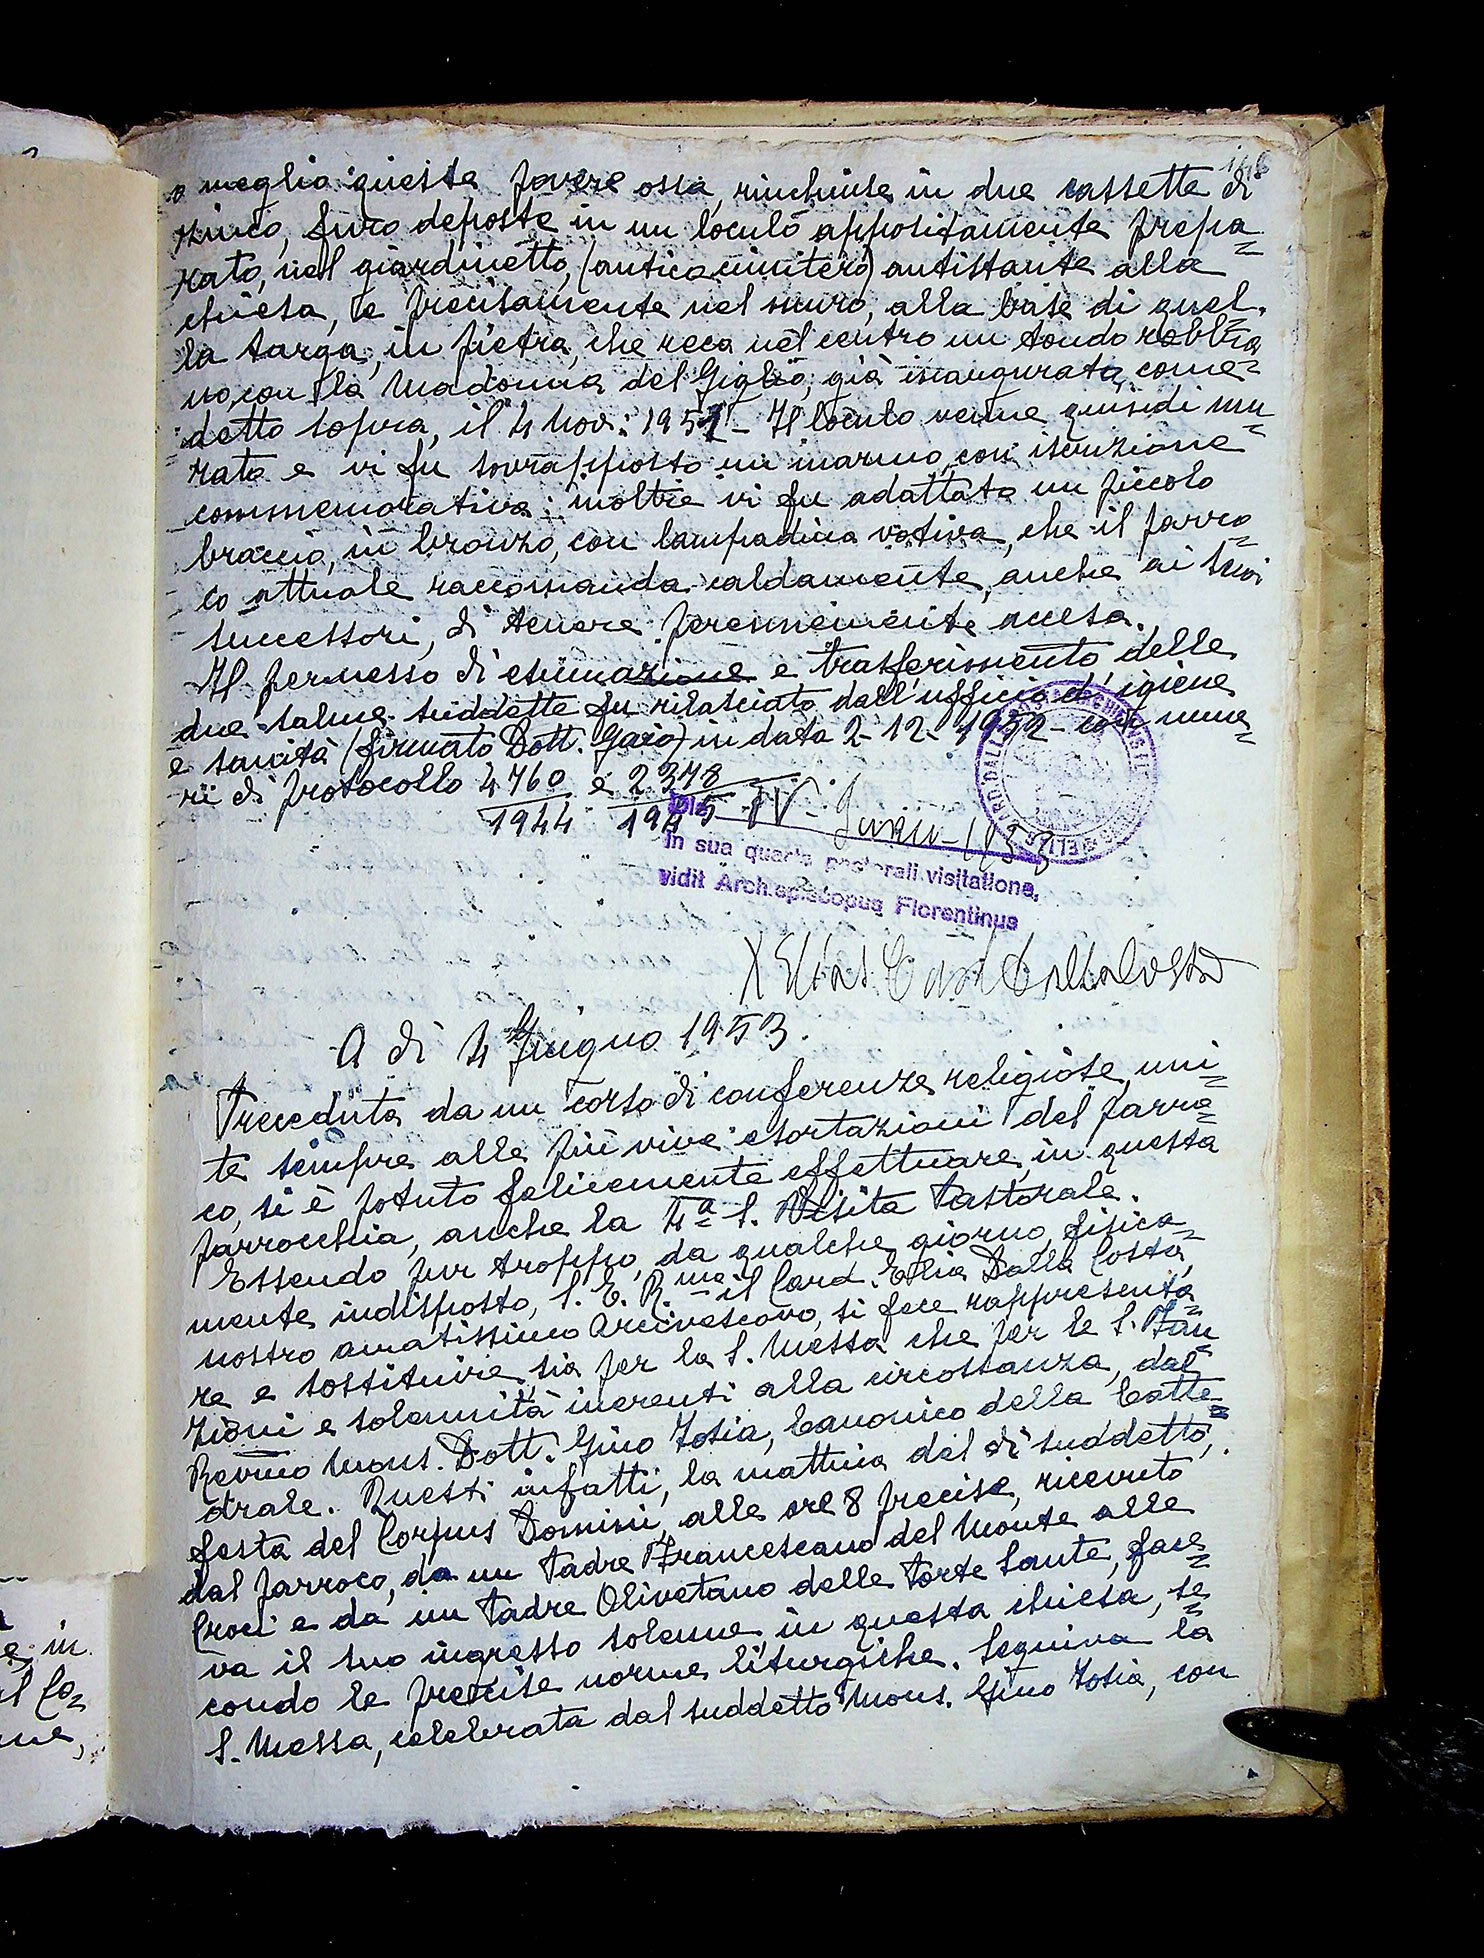 o meglio queste povere ossa, rinchiuse in due cassette di
zinco, furo deposte in un loculo appositamente prepa=
rato, nel giardinetto, (antico cimitero) antistante alla
chiesa, e precisamente nel muro, alla base di quel-
la targa, in pietra, che reca nel centro un tondo robbia
no, con la Madonna del Giglio, già inaugurata, come
detto sopra, il 4 Nov: 1951 - Il loculo venne quindi mu=
rato e vi fu sovrapposto un marmo con iscrizione
commemorativa: inoltre vi fu adattato un piccolo
braccio, in bronzo, con lampadina votiva, che il parro=
co attuale raccomanda caldamente, anche ai suoi
successori, di tenere perennemente accesa.
Il permesso di esumazione e trasferimento delle
due salme suddette fu rilasciato dall'ufficio di igiene
e sanità (firmato Dott. Garo) in data 2-12-1952 - con nume=
ri di protocollo 4760/1944 e 2378/1945
148
Die IV - Junii - 1953
in sua quarta pastorali visitatione,
vidit Archiepiscopus Florentinus
X Elias Card Dalla Costa
A dì 4 Giugno 1953.
Preceduta da un corso di conferenze religiose, uni=
te sempre alle più vive esortazioni del parro=
co, si è potuto felicemente effettuare, in questa
parrocchia, anche la 4ª S. Visita Pastorale.
Essendo pur troppo, da qualche giorno, fisica=
mente indisposto, S. E. R.ma il Card. Elia Dalla Costa,
nostro amatissimo Arcivescovo, si fece rappresenta=
re e sostituire, sia per la S. Messa che per le S. Fun=
zioni e solennità inerenti alla circostanza, dal
Revmo Mons. Dott. Gino Tosia, Canonico della Catte=
drale. Questi infatti, la mattina del dì suddetto,
festa del Corpus Domini, alle ore 8 precise, ricevuto
dal parroco, da un Padre Francescano del Monte alle
Croci e da un Padre Olivetano delle Porte Sante, face=
va il suo ingresso solenne, in questa chiesa, se=
condo le precise norme liturgiche. Seguiva la
S. Messa, celebrata dal suddetto Mons. Gino Tosia, con